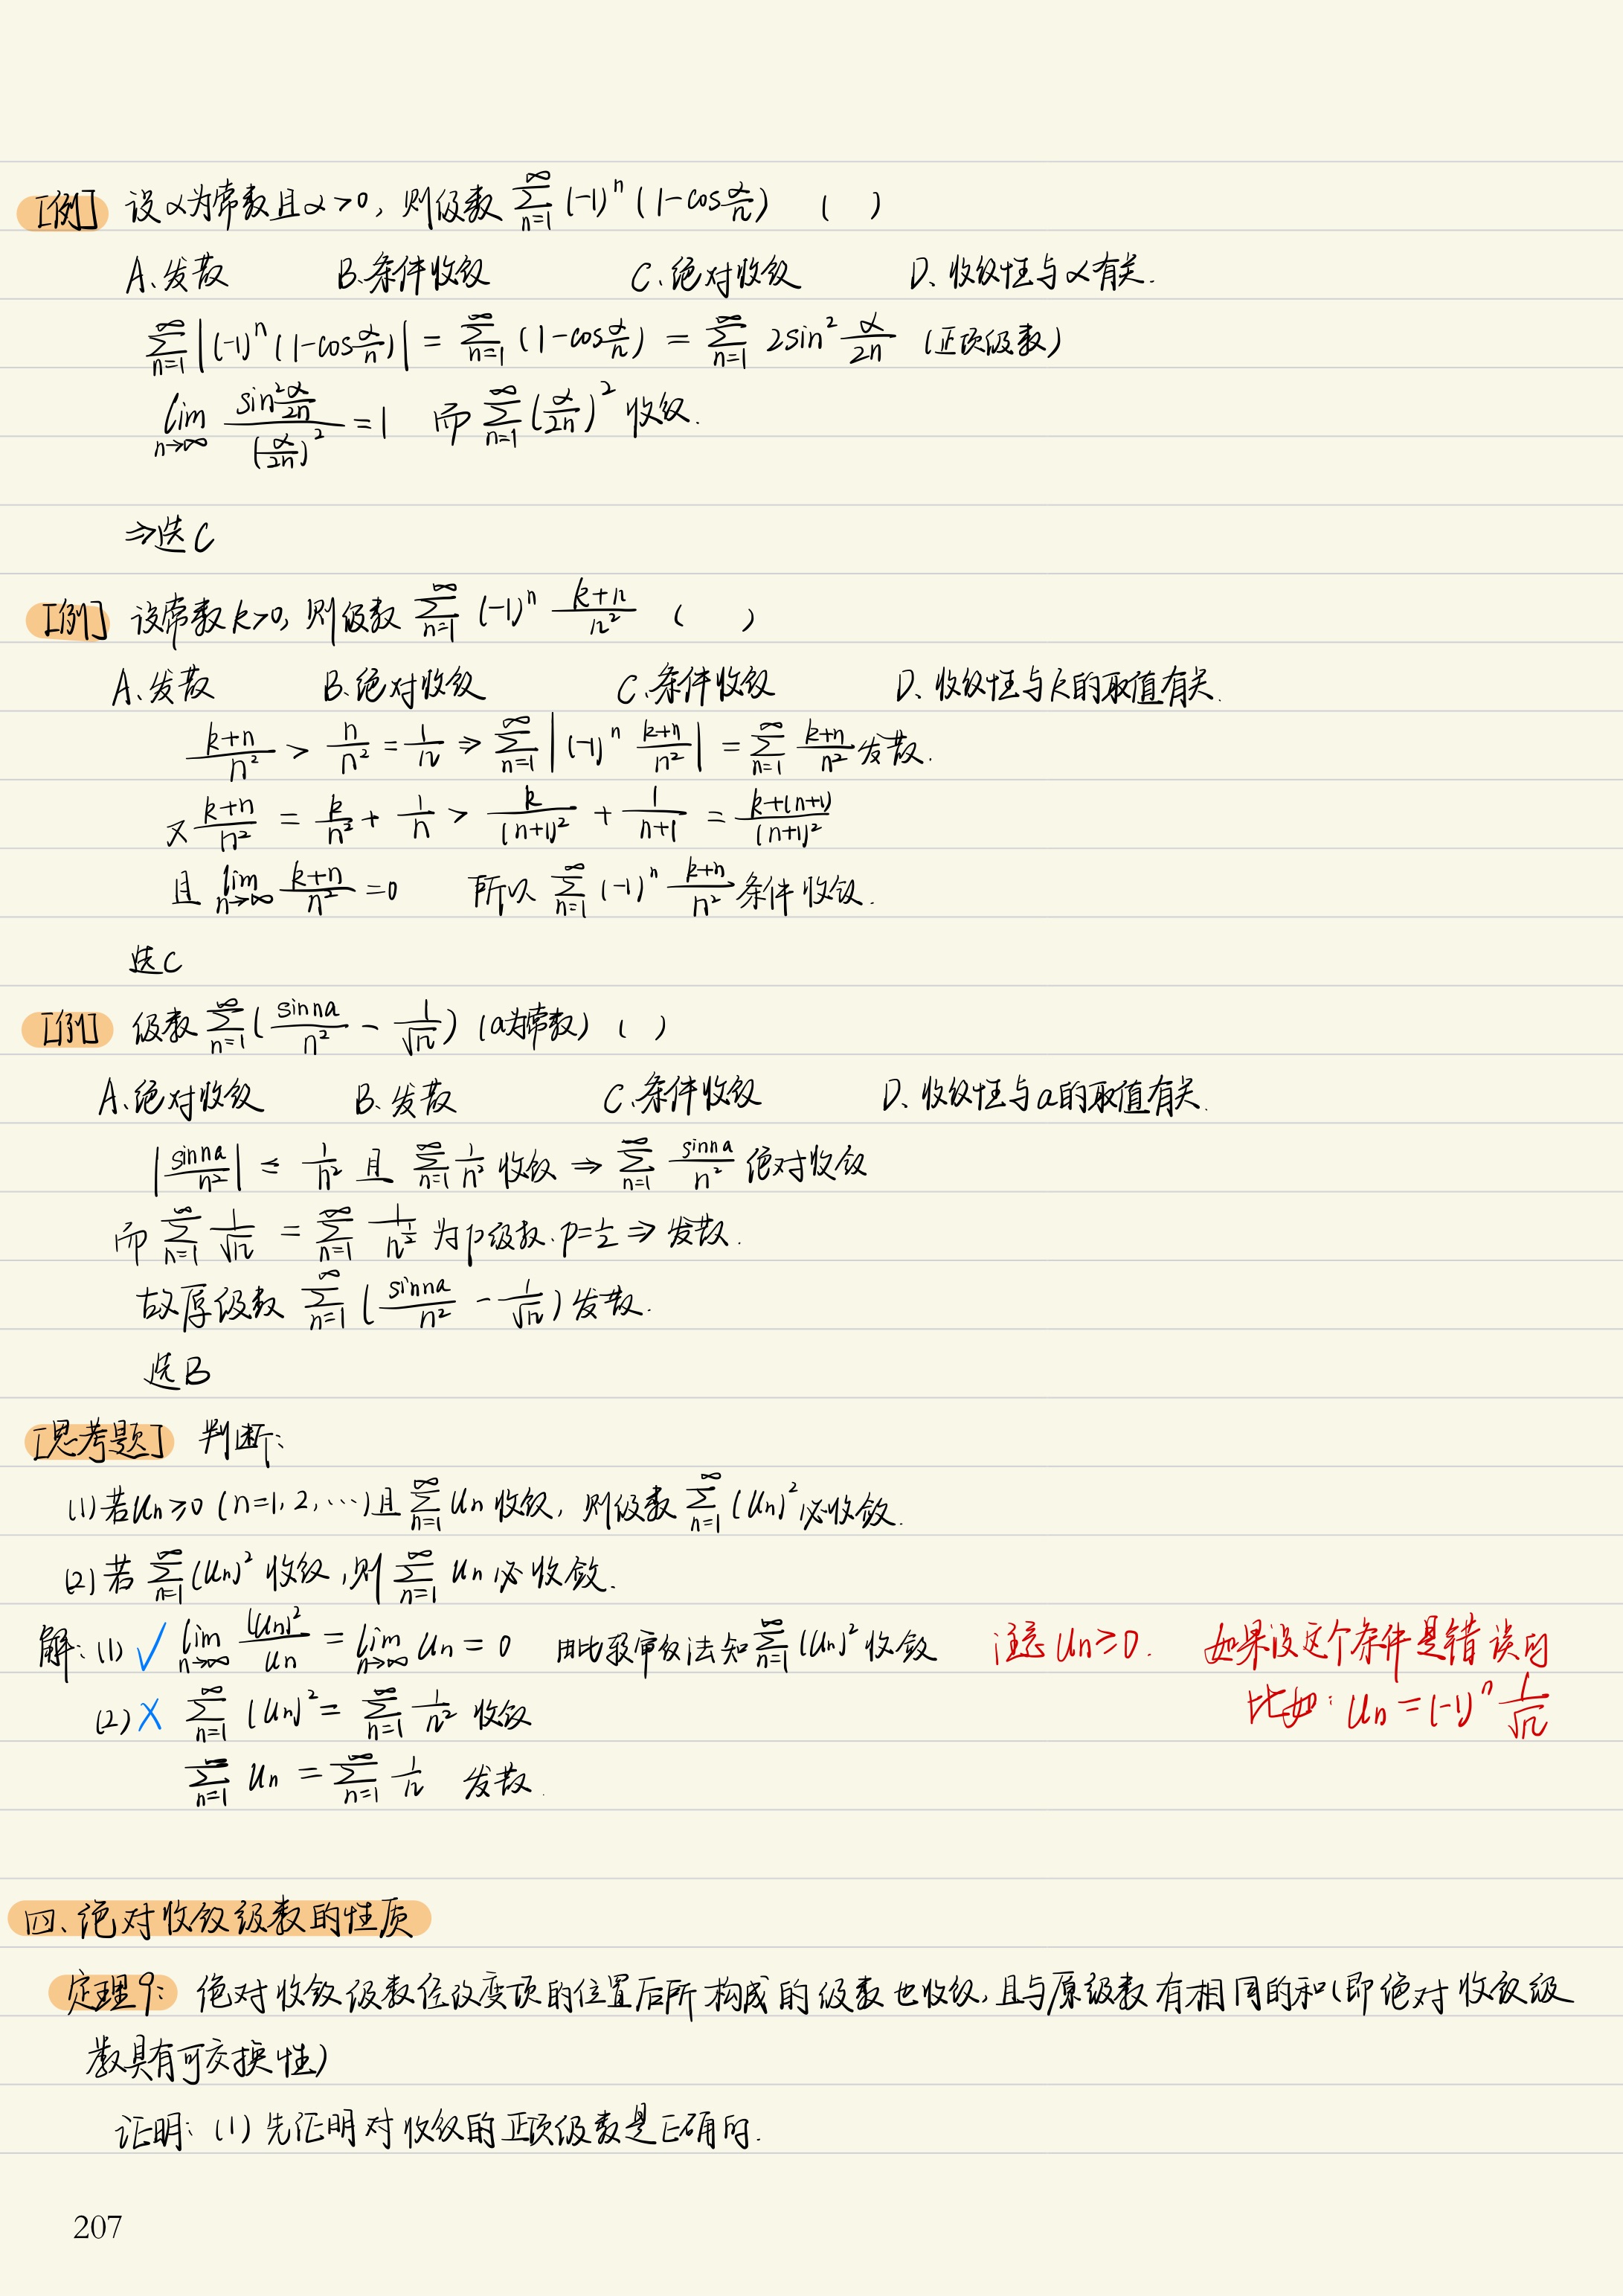 [例] 设α为常数且α>0, 则级数 ∑_{n=1}^{∞} (-1)^n (1-cos α/n) (  )
A、发散 B.条件收敛 C、绝对收敛 D、收敛性与α有关.
∑_{n=1}^{∞} |(-1)^n (1-cos α/n)| = ∑_{n=1}^{∞} (1-cos α/n) = ∑_{n=1}^{∞} 2sin² α/2n (正项级数)
lim_{n→∞} (sin² α/2n)/(α/2n)² = 1 而 ∑_{n=1}^{∞} (α/2n)² 收敛.
⇒选C
[例] 设常数k>0, 则级数 ∑_{n=1}^{∞} (-1)^n (k+n)/n² (  )
A、发散 B.绝对收敛 C、条件收敛 D、收敛性与k的取值有关.
(k+n)/n² > n/n² = 1/n ⇒ ∑_{n=1}^{∞} |(-1)^n (k+n)/n²| = ∑_{n=1}^{∞} (k+n)/n² 发散.
又 (k+n)/n² = k/n² + 1/n > k/(n+1)² + 1/(n+1) = (k+(n+1))/(n+1)²
且 lim_{n→∞} (k+n)/n² = 0 所以 ∑_{n=1}^{∞} (-1)^n (k+n)/n² 条件收敛.
选C
[例] 级数 ∑_{n=1}^{∞} (sin na/n² - 1/√n) (a为常数) (  )
A、绝对收敛 B、发散 C、条件收敛 D、收敛性与a的取值有关.
|sin na/n²| ≤ 1/n² 且 ∑_{n=1}^{∞} 1/n² 收敛 ⇒ ∑_{n=1}^{∞} sin na/n² 绝对收敛
而 ∑_{n=1}^{∞} 1/√n = ∑_{n=1}^{∞} 1/n^{1/2} 为p级数. p=1/2 ⇒ 发散.
故原级数 ∑_{n=1}^{∞} (sin na/n² - 1/√n) 发散.
选B
[思考题] 判断:
(1) 若Un≥0 (n=1, 2, ⋯) 且 ∑_{n=1}^{∞} Un 收敛, 则级数 ∑_{n=1}^{∞} (Un)² 必收敛.
(2) 若 ∑_{n=1}^{∞} (Un)² 收敛, 则 ∑_{n=1}^{∞} Un 必收敛.
解: (1) ✓ lim_{n→∞} (Un)²/Un = lim_{n→∞} Un = 0 用比较审敛法知 ∑_{n=1}^{∞} (Un)² 收敛 注意 Un≥0. 如果没这个条件是错误的
(2) × ∑_{n=1}^{∞} (Un)² = ∑_{n=1}^{∞} 1/n² 收敛 比如: Un = (-1)^n 1/√n
∑_{n=1}^{∞} Un = ∑_{n=1}^{∞} 1/n 发散.
四、绝对收敛级数的性质
定理9: 绝对收敛级数经改变项的位置后所构成的级数也收敛, 且与原级数有相同的和(即绝对收敛级
数具有可交换性)
证明: (1) 先证明对收敛的正项级数是正确的.
207